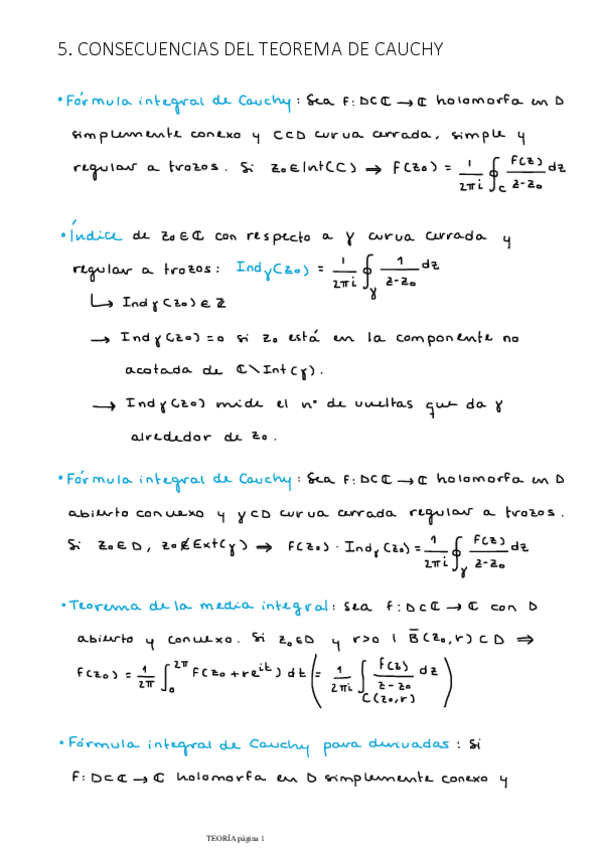 5. CONSECUENCIAS DEL TEOREMA DE CAUCHY
• Fórmula integral de Cauchy : Sea f: D⊂ℂ → ℂ holomorfa en D
simplemente conexo y C⊂D curva cerrada, simple y
regular a trozos. Si z₀∈Int(C) → f(z₀) = 1/2πi ∮_C f(z)/z-z₀ dz
• Índice de z₀∈ℂ con respecto a γ curva cerrada y
regular a trozos: Ind_γ(z₀) = 1/2πi ∮_γ 1/z-z₀ dz
↳ Ind_γ(z₀) ∈ ℤ
→ Ind_γ(z₀) = 0 si z₀ está en la componente no
acotada de ℂ\Int(γ).
→ Ind_γ(z₀) mide el nº de vueltas que da γ
alrededor de z₀.
• Fórmula integral de Cauchy : Sea f: D⊂ℂ → ℂ holomorfa en D
abierto convexo y γ⊂D curva cerrada regular a trozos.
Si z₀∈D, z₀∉Ext(γ) ⇒ f(z₀) · Ind_γ(z₀) = 1/2πi ∮_γ f(z)/z-z₀ dz
• Teorema de la media integral : Sea f: D⊂ℂ → ℂ con D
abierto y convexo. Si z₀∈D y r>0 | B̅(z₀,r) ⊂ D ⇒
f(z₀) = 1/2π ∫₀^2π f(z₀+re^it) dt (= 1/2πi ∫_C(z₀,r) f(z)/z-z₀ dz)
• Fórmula integral de Cauchy para derivadas : Si
f: D⊂ℂ → ℂ holomorfa en D simplemente conexo y
TEORÍA página 1